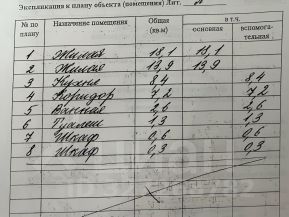 Экспликация к плану объекта (помещения) Лит.
№ по плану Назначение помещения Общая (кв.м) в т.ч. основная вспомога- тельная
1 Жилая 18,1 18,1
2 Жилая 13,9 13,9
3 Кухня 8,4 8,4
4 Коридор 7,2 7,2
5 Ванная 2,6 2,6
6 Туалет 1,3 1,3
7 Шкаф 0,6 0,6
8 Шкаф 0,3 0,3